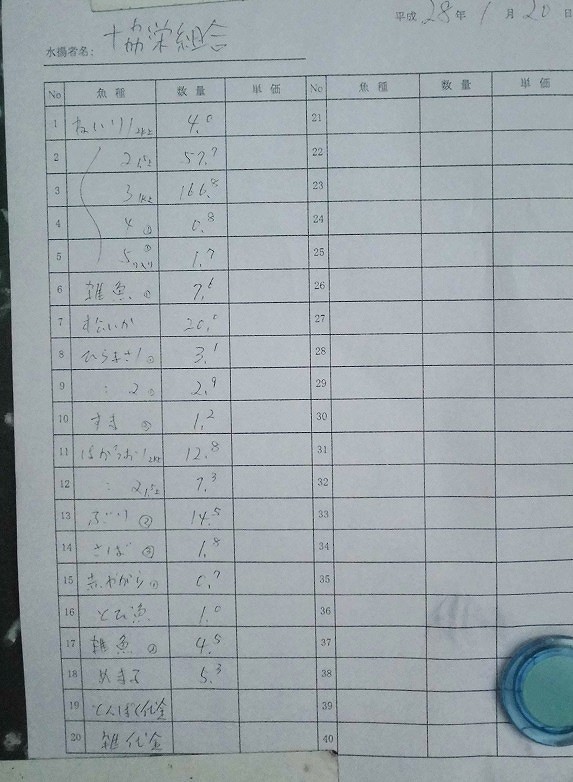 平成 28 年 1 月 20 日
水揚者名: 協栄組合
No 魚種 数量 単価 No 魚種 数量 単価
1 ねいり1 4.0 21
2 2 57.7 22
3 3 166.8 23
4 4 0.8 24
5 5 1.7 25
6 雑魚 7. 26
7 するいか 20. 27
8 ひらまさ1 3.1 28
9 : 2 2.9 29
10 すま 1.2 30
11 はがつお1 12.8 31
12 : 2 7.3 32
13 ぶり 14.5 33
14 さば 1.8 34
15 赤やがら 0.7 35
16 とび魚 1.0 36
17 雑魚 4.5 37
18 5.3 38
19 とんぼ代金 39
20 雑代金 40